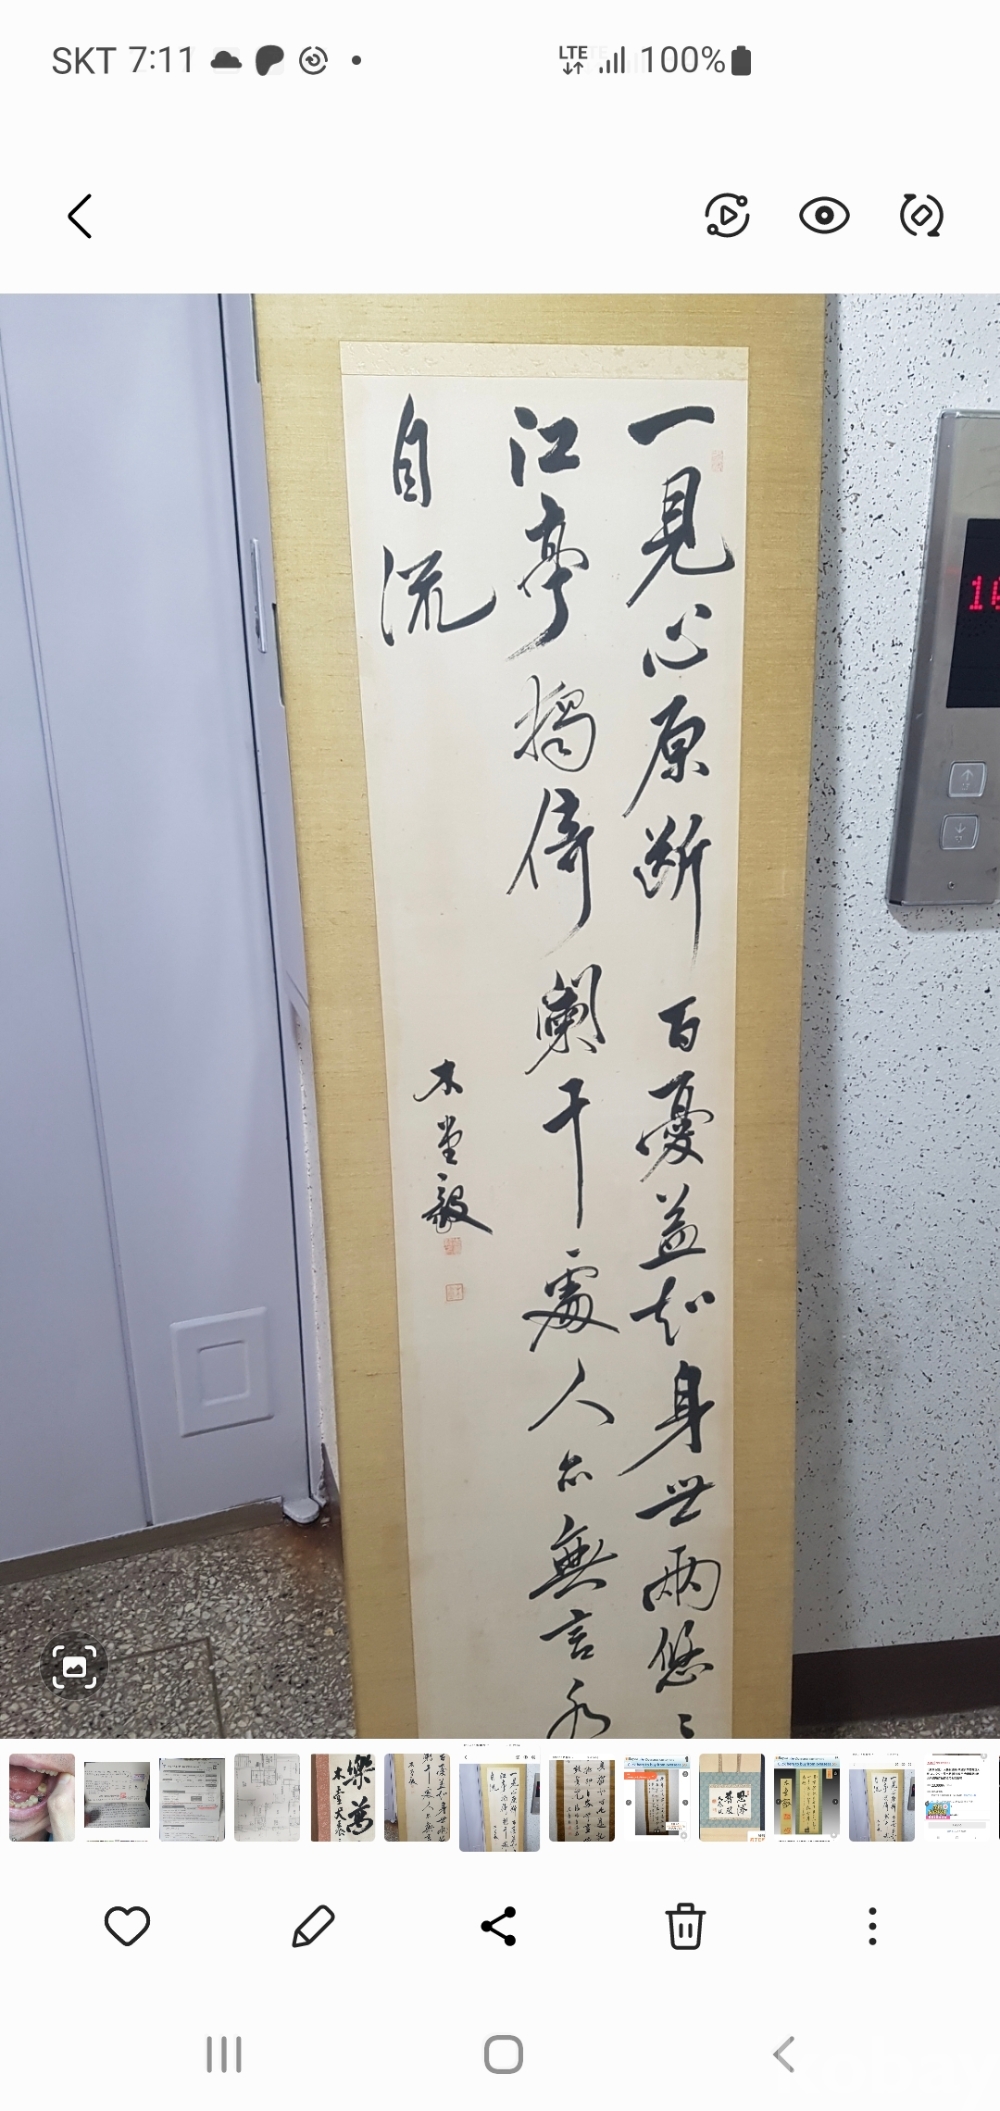 SKT 7:11
LTE 100%
一見心原断百憂益知身世両悠〻
江亭獨倚闌干處人亦無言水
自流
木堂毅